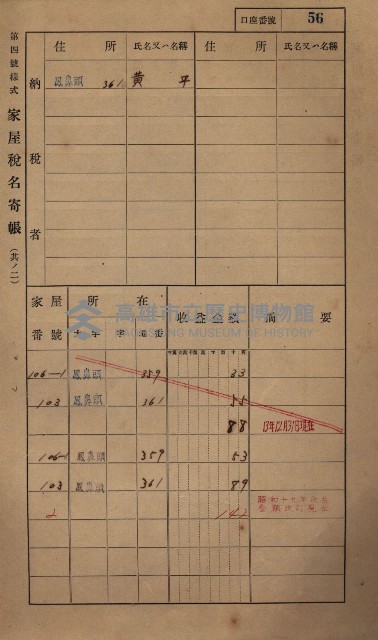 口座番號 56
第四號樣式 家屋稅名寄帳 (其ノ二)
納稅者
住所 氏名又ハ名稱 住所 氏名又ハ名稱
鳳鼻頭 361 黃 平
家屋番號 所在 收益金額 摘要
大字 字 地番
高雄市立歷史博物館
KAOHSIUNG MUSEUM OF HISTORY
106-1 鳳鼻頭 359 33
103 鳳鼻頭 361 55
88 13年12月31日現在
106-1 鳳鼻頭 359 53
103 鳳鼻頭 361 89
2 142
昭和十九年